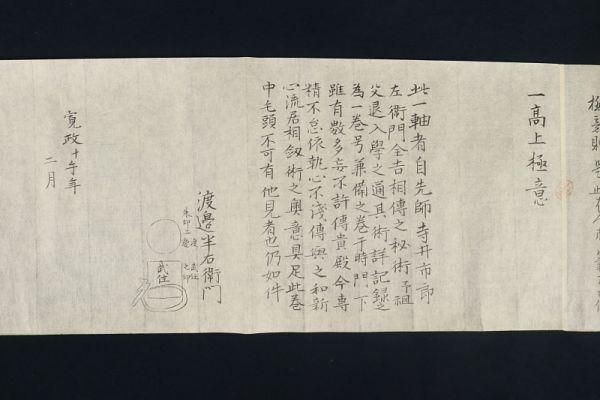 一高上極意
此一軸者自先師寺井市郎
左衛門全吉相傳之秘術予祖
父退入學之通其術詳記録之
為一巻号兼備之巻于時門下
雖有数多妄不許傳貴殿今専
精不怠依執心不淺傳與之和新
心流居相釼術之奥意具足此巻
中毛頭不可有他見者也仍如件
渡邊半右衛門
朱印二
武住
寛政十午年
二月